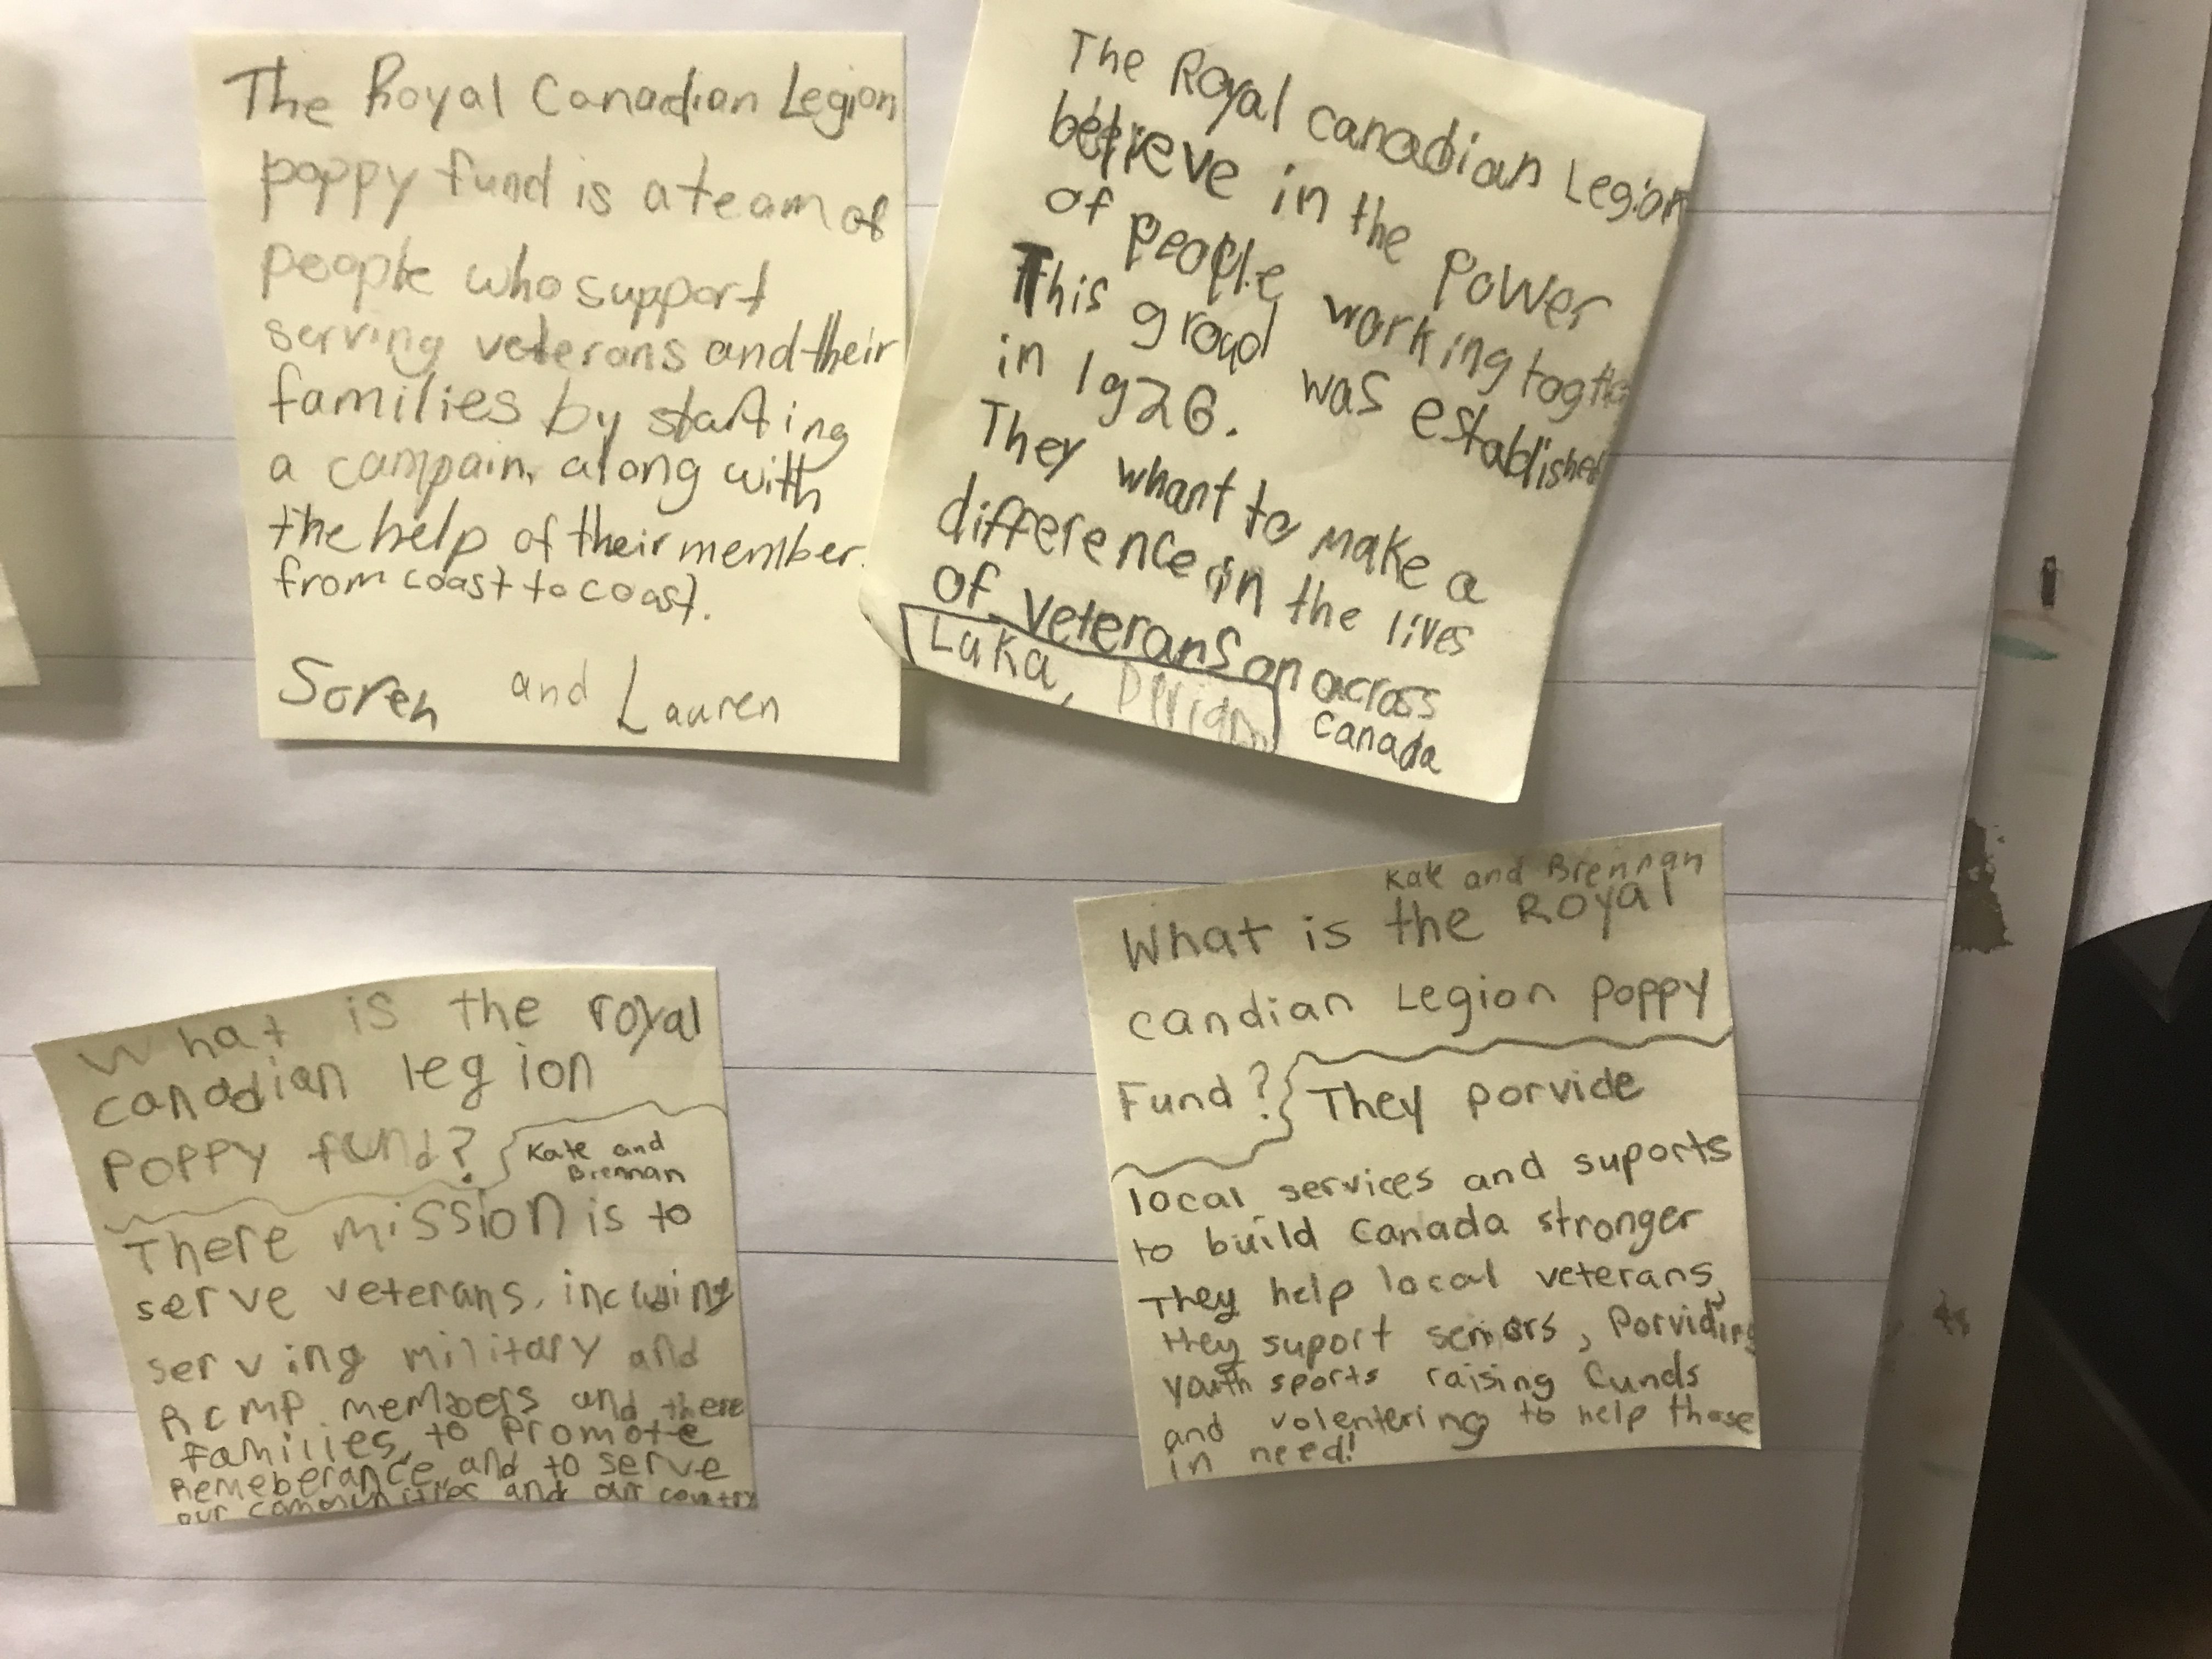 The Royal Canadian Legion
poppy fund is a team of
people who support
serving veterans and their
families by starting
a campain, along with
the help of their member.
from coast to coast.
Soren and Lauren
The Royal canadian Legion
believe in the power
of people working togthe
This groud was established
in 1926.
They whant to make a
difference in the lives
of veterans on across
canada
Luka,
Kate and Brennan
What is the Royal
candian Legion Poppy
Fund? They porvide
local services and suports
to build Canada stronger
They help local veterans,
they suport seniors, Porviding
youth sports raising funds
and volentering to help those
in need!
What is the royal
canadian legion
Poppy fund?
Kate and
Brennan
There mission is to
serve veterans, including
serving military and
RCMP members and there
families, to Promote
Remeberance, and to serve
our communities and our country